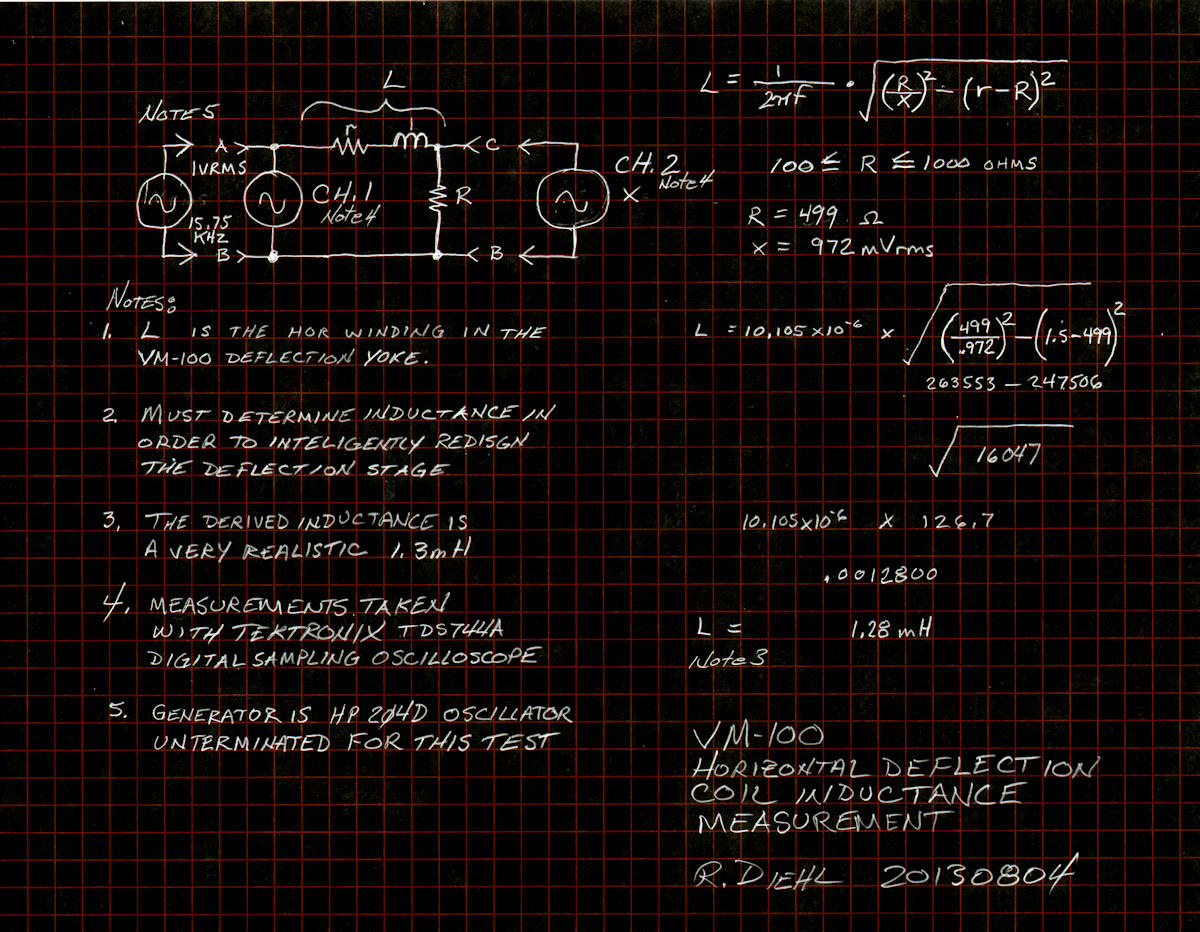 L
NOTE 5
A
r
l
C
1VRMS
CH. 1
Note 4
R
CH. 2
Note 4
X
15.75
KHZ
B
B
NOTES:
1. L IS THE HOR WINDING IN THE
VM-100 DEFLECTION YOKE.
2. MUST DETERMINE INDUCTANCE IN
ORDER TO INTELIGENTLY REDISGN
THE DEFLECTION STAGE
3, THE DERIVED INDUCTANCE IS
A VERY REALISTIC 1.3mH
4. MEASUREMENTS TAKEN
WITH TEKTRONIX TDS744A
DIGITAL SAMPLING OSCILLOSCOPE
5. GENERATOR IS HP 204D OSCILLATOR
UNTERMINATED FOR THIS TEST
L = 1/2πf • √(R/X)² - (r-R)²
100 ≤ R ≤ 1000 OHMS
R = 499 Ω
X = 972 mVrms
L = 10.105 x10⁻⁶ x √(499/.972)² - (1.5-499)²
263553 - 247506
√16047
10.105x10⁻⁶ x 126.7
.0012800
L = 1.28 mH
Note 3
VM-100
HORIZONTAL DEFLECTION
COIL INDUCTANCE
MEASUREMENT
R. DIEHL 20130804